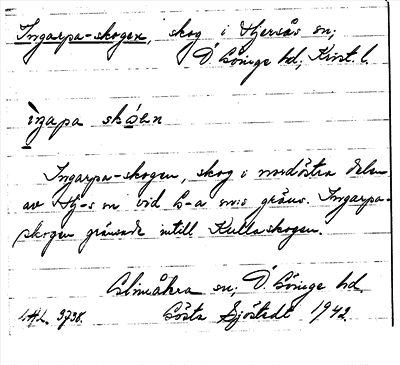 Ingarpa-skogen, skog i Hjersås sn;
Ö. Göinge hd, Krist. l.
ìŋapa skóen
Ingarpa-skogen, skog i nordöstra delen
av Hj-s sn vid G-a sns gräns. Ingarpa-
skogen gränsade intill Kullaskogen.
Glimåkra sn, Ö. Göinge hd.
L.A.L. 3738. Gösta Sjöstedt 1942.